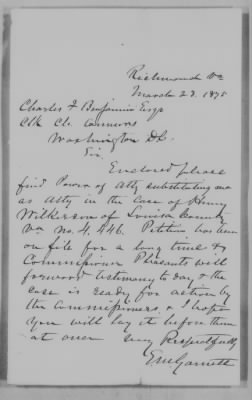 Richmond Va
March 23. 1875
Charles F Benjamin Esqr
Clk Ch. Comrs
Washington DC.
Sir
Enclosed please
find Power of Atty substituting me
as Atty in the Case of Henry
Wilkerson of Louisa County
Va no. 4,446. Petition has been
on file for a long time &
Commissioner Pleasants will
forward testimony to day & the
case is ready for action by
the Commissioners & I hope
you will lay it before them
at once Very Respectfully
E M Garnett